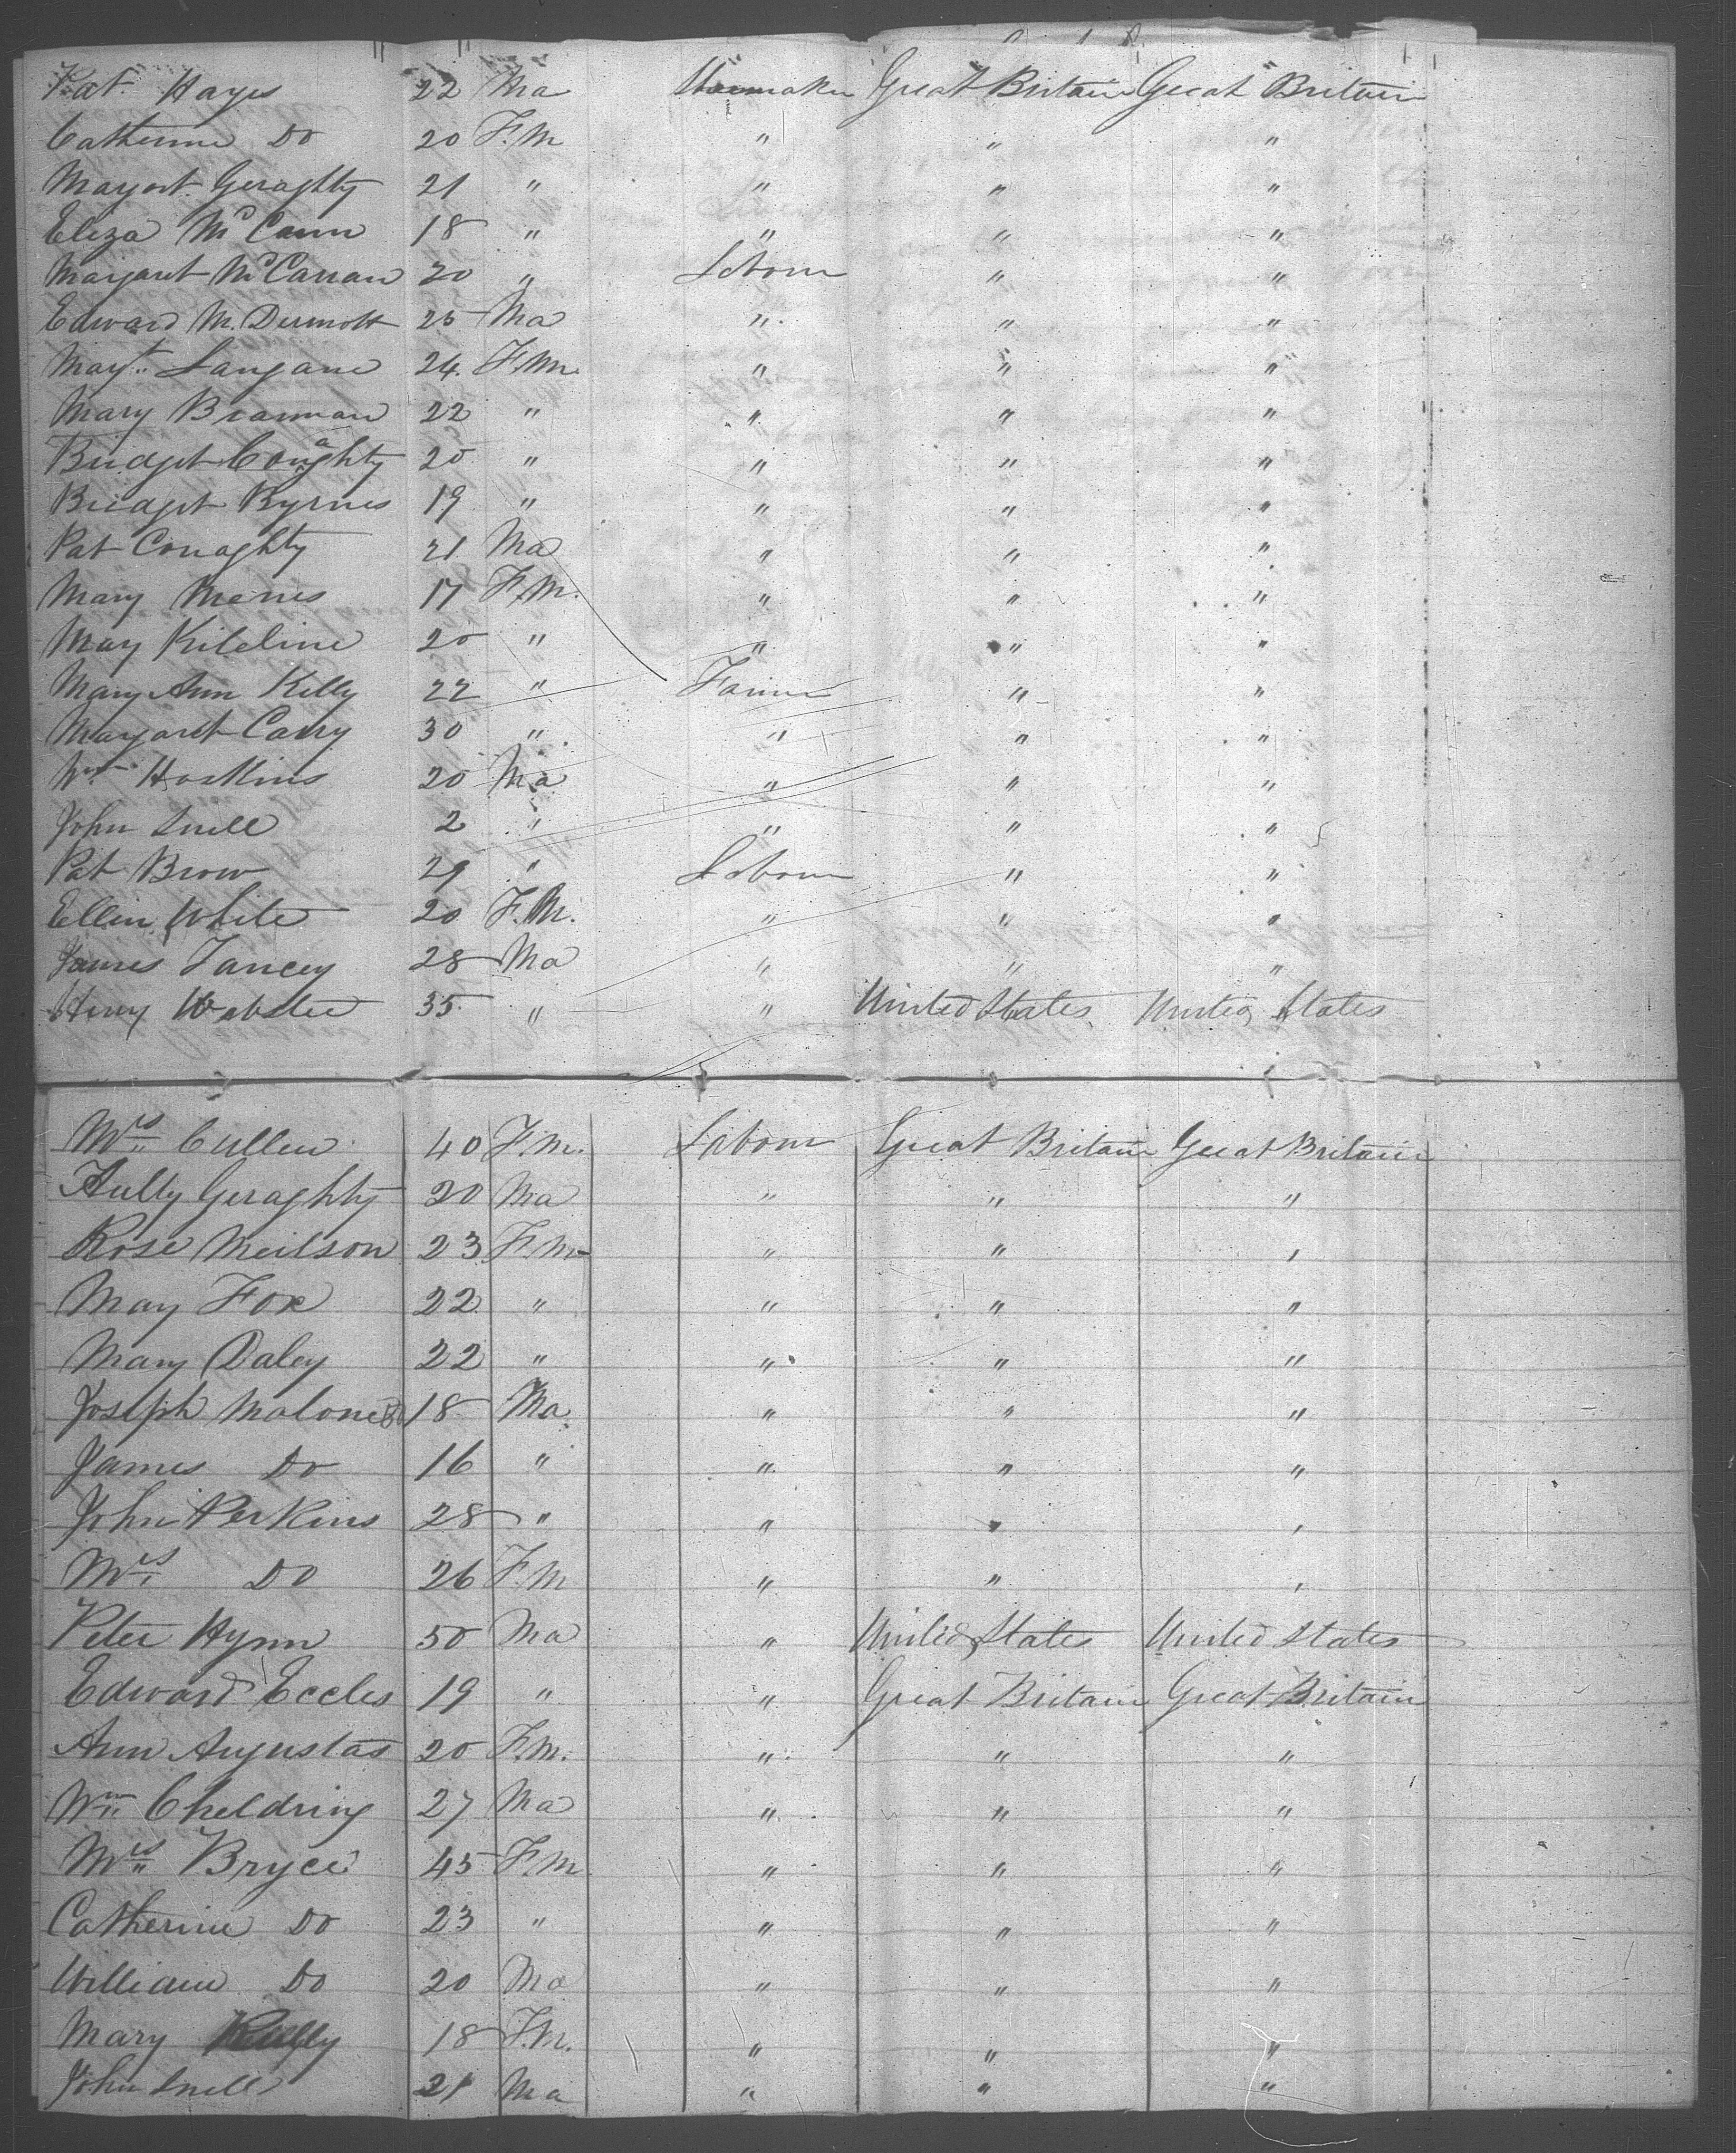 Pat Hayes 22 Ma Shoemaker Great Britain Great Britain
Catherine Do 20 F.m " " "
Margart. Geraghty 21 " " " "
Eliza McCann 18 " " " "
Margaret McCarran 20 " Labour " "
Edward M. Dermott 25 Ma " " "
Margt. Langane 24. F.m. " " "
Mary Brannan 22 " " " "
Bridget Conaghty 20 " " " "
Bridget Byrnes 19 " " " "
Pat Conaghty 21 Ma " " "
Mary 17 F.m. " " "
May Kilcline 20 " " " "
Mary Ann Kelly 22 " Farmer " "
Margaret Carry 30 " " " "
Wm. Hoskins 20 Ma " " "
John Snell 2 " " " "
Pat Brow 29 " Labour " "
Ellen White 20 F.M. " " "
James 28 Ma " " "
Henry Webster 35 " " United States United States
Mrs. Cullen 40 F.m. Labour Great Britain Great Britain
Geraghty 20 Ma " " "
Rose Neilson 23 F.m " " "
May Fox 22 " " " "
Mary Daley 22 " " " "
Joseph Malone 18 Ma. " " "
James Do 16 " " " "
John Perkins 28 " " " "
Mrs. Do 26 F.m " " "
Peter Hynn 50 Ma " United States United States
Edward Eccles 19 " " Great Britain Great Britain
Ann Augustas 20 F.m. " " "
Wm. Cheldring 27 Ma " " "
Mrs. Bryce 45 F.m " " "
Catherine Do 23 " " " "
William Do 20 Ma " " "
Mary 18 F.m. " " "
John Snell 21 Ma " " "